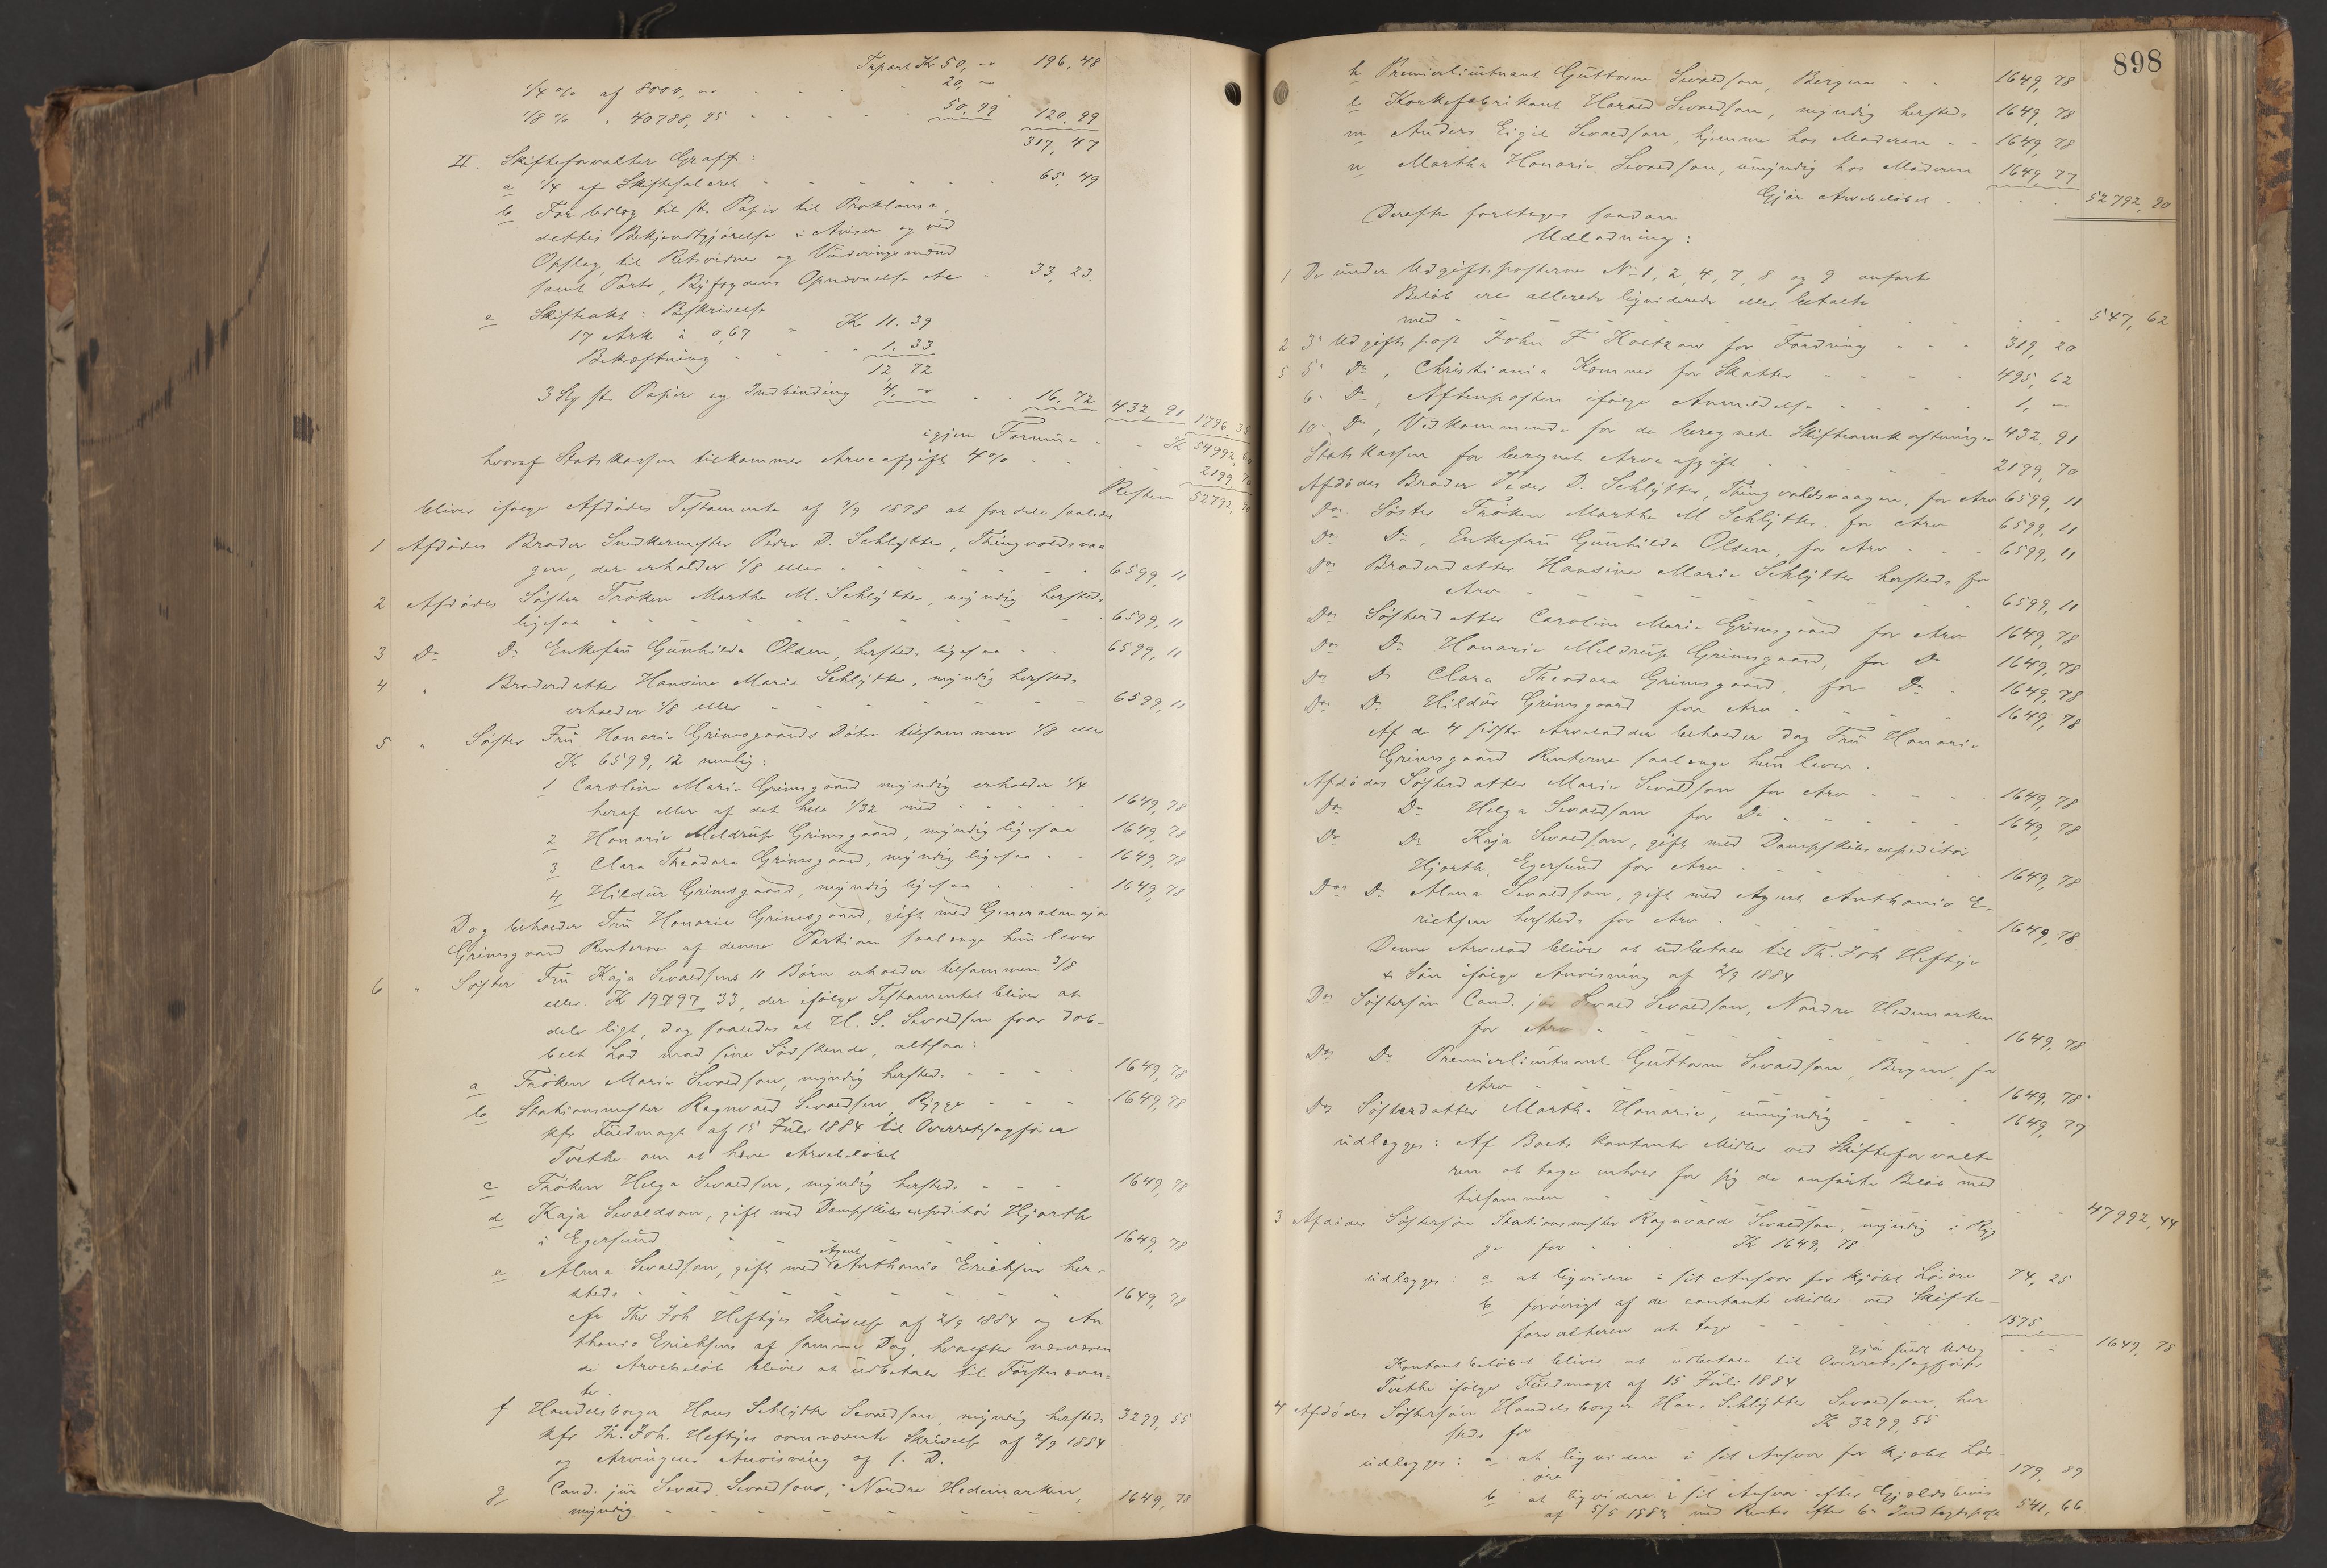 Trpart Kr 50, -- 196, 48
1/4 % af 8000, -- - - - - 20, --
1/8 % " 40788, 95 - - - - - 50, 99 120, 99
317, 47
II. Skifteforvalter Graff:
a 1/4 af Skiftesaleret - - - - - 65, 49
b For Udlæg til st. Papir til Proklama,
dettes Bekjendtgjörelse i Aviser og ved
Opslag, til Retsvidner og Vurderingsmænd
samt Porto, Byfogdens Opnævnelse etc - 33, 23.
c Skifteakt: Beskrivelse
17 Ark à 0,67 - Kr 11. 39
Bekræftning - - - - 1. 33
12, 72
3 Slg st. Papir og Indbinding 4, -- - - 16, 72 432, 91 1796, 35
igjen Formue - - Kr 54992, 60
hvoraf Statskassen tilkommer Arveafgift 4% - - - 2199, 70
Resten 52792, 90
bliver ifölge Afdödes Testamente af 9/9 1878 at fordele saaledes
1 Afdödes Broder Snedkermester Peder D. Schlytter, Thingvoldsvaa
gen, der erholder 1/8 eller - - - - - - 6599, 11
2 Afdödes Söster Fröken Marthe M. Schlytter, myndig hersteds
ligesaa - - - - - - - - 6599, 11
3 Do Do Enkefru Gunhilda Olsen, hersteds ligesaa - - 6599, 11
4 " Broderdatter Hansine Marie Schlytter, myndig hersteds
erholder 1/8 eller - - - - - - - 6599, 11
5 " Söster Fru Honorie Grimsgaards Dötre tilsammen 1/8 eller
Kr 6599, 12 nemlig:
1 Caroline Marie Grimsgaard myndig erholder 1/4
heraf eller af det hele 1/32 med - - - - 1649, 78
2 Honorie Meldrup Grimsgaard, myndig ligesaa 1649, 78
3 Clara Theodora Grimsgaard, myndig ligesaa - - 1649, 78
4 Hildur Grimsgaard, myndig ligesaa - - - 1649, 78
Dog beholder Fru Honorie Grimsgaard, gift med Generalmajor
Grimsgaard Renterne af denne Portion saalenge hun lever
6 " Söster Fru Kaja Sivaldsens 11 Börn erholder tilsammen 3/8
eller Kr 19797, 33, der ifölge Testamentet bliver at
dele ligt, dog saaledes at H. S. Sivaldsen faar dob-
belt Lod mod sine Södskende, altsaa:
a Fröken Marie Sivaldsen, myndig hersteds - - - - 1649, 78
b Stationsmester Ragnvald Sivaldsen, Rygge - - - 1649, 78
kfr Fuldmagt af 15 Juli 1884 til Overretssagförer
Tvethe om at hæve Arvebelöbet
c Fröken Helga Sivaldsen, myndig hersteds - - - 1649, 78
d Kaja Sivaldsen, gift med Dampskibsexpeditör Hjorth
i Egersund - - - - - - 1649, 78
e Alma Sivaldsen, gift med Agent Anthonio Erichsen her-
steds - - - - - - - - 1649, 78
cfr Ths Joh Heftyes Skrivelse af 2/9 1884 og An
thonio Erichsens af samme Dag, hvorefter nævnen
de Arvebelöb bliver at udbetale til Förstnævn-
te.
f Handelsborger Hans Schlytter Sivaldsen, myndig hersteds 3299, 55
kfr Th. Joh. Heftyes ovennævnte Skrivelse af 2/9 1884
og Arvingens Anvisning af s. D.
g Cand. jur Sivald Sivaldsen, Nordre Hedemarken,
myndig - - - - - - - 1649, 78
898
h Premierlieutnant Guttorm Sivaldsen, Bergen - - 1649, 78
l Korkefabrikant Harald Sivaldsen, myndig hersteds 1649, 78
m Anders Eigil Sivaldsen, hjemme hos Moderen - - 1649, 78
n Martha Honorie Sivaldsen, umyndig hos Moderen 1649, 77
Gjör Arvebelöbet - - - - 52792, 90
Derefter foretages saadan
Udlodning:
1 De under Udgiftsposterne No 1, 2, 4, 7, 8 og 9 anförte
Belöb ere allerede ligviderede eller betalte
med - - - - - - - - 547, 62
2 3' Udgifts post John F Koltzow for Fordring - - - 319, 20
5 5' Do, Christiania Kommune for Skatter - - - - 495, 62
6' Do, Aftenposten ifölge Anmeldelse - - - - 1, --
10' Do, Vedkommende for de beregnede Skifteomkostninger 432, 91
Statskassen for beregnet Arveafgift - - - - - 2199, 70
Afdödes Broder Peder D. Schlytter, Thingvoldsvaagen, for Arv 6599, 11
Dos Söster Fröken Marthe M Schlytter, for Arv 6599, 11
Do Do, Enkefru Gunhilda Olsen, for Arv - - - 6599, 11
Dos Broderdatter Hansine Marie Schlytter hersteds for
Arv - - - - - - - - 6599, 11
Dos Sösterdatter Caroline Marie Grimsgaard for Arv 1649, 78
Dos Do Honorie Meldrup Grimsgaard, for Do 1649, 78
Do Do Clara Theodora Grimsgaard, for Do - 1649, 78
Dos Do Hildur Grimsgaard for Arv - - - 1649, 78
Af de 4 sidste Arvelodder beholder dog Fru Honorie
Grimsgaard Renterne saalenge hun lever.
Afdödes Sösterdatter Marie Sivaldsen for Arv - - - 1649, 78
Do Do Helga Sivaldsen for Do - - - - 1649, 78
Do Do Kaja Sivaldsen, gift med Dampskibsexpeditör
Hjorth, Egersund for Arv - - - - 1649, 78
Dos Do Alma Sivaldsen, gift med Agent Anthonio E-
richsen hersteds for Arv - - - - 1649, 78
Denne Arvelod bliver at udbetale til Th. Joh Heftye
& Sön ifölge Anvisning af 2/9 1884
Dos Söstersön Cand. jur Sivald Sivaldsen, Nordre Hedemarken
for Arv - - - - - - 1649, 78
Dos Do Premierlieutnant Guttorm Sivaldsen, Bergen, for
Arv - - - - - - - 1649, 78
Dos Sösterdatter Martha Honorie, umyndig - - - 1649, 77
udlægges: Af Boets kontante Midler ved Skifteforvalte
ren at tage enhver for sig de anförte Belöb med
tilsammen - - - - - - - 47992, 44
3 Afdödes Söstersön Stationsmester Ragnvald Sivaldsen, myndig i Ryg
ge for - - - - Kr 1649, 78
udlægges: a at ligvidere i sit Ansvar for kjöbt Lösöre 74, 25
b forövrigt af de contante Midler ved Skifte-
forvalteren at tage - - - - - 1575
gjör fuldt Udlæg - - 1649, 78
Kontantbelöbet bliver at udbetale til Overretssagförer
Tvethe ifölge Fuldmagt af 15 Juli 1884
4 Afdödes Söstersön Handelsborger Hans Schlytter Sivaldsen, her
steds for - - - - Kr 3299, 55
udlægges: a at ligvidere i sit Ansvar for kjöbt Lös-
öre - - - - - - 179, 89
b at ligvidere i sit Ansvar efter Gjældsbevis
af 5/5 1883 med Renter efter 6' Indtægtspost 541, 66